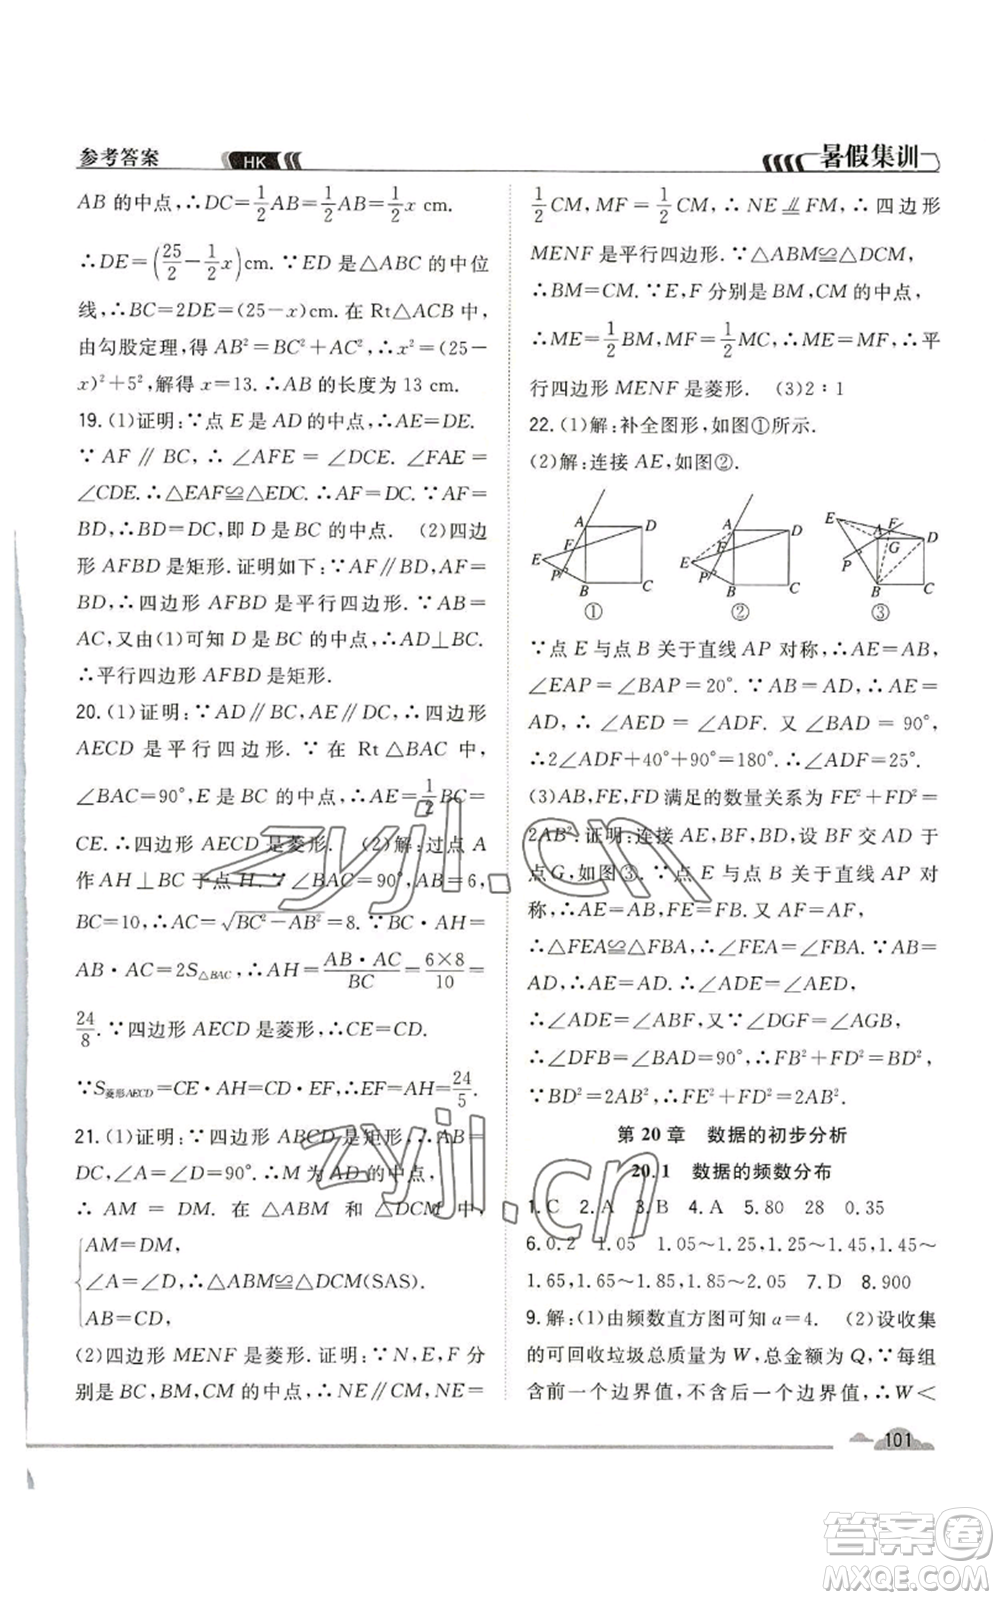 参考答案
HK
暑假集训
AB 的中点,∴DC=1/2AB=1/2AB=1/2x cm.
∴DE=(25/2-1/2x)cm.∵ED 是△ABC 的中位
线,∴BC=2DE=(25-x)cm.在 Rt△ACB 中,
由勾股定理,得 AB²=BC²+AC²,∴x²=(25-
x)²+5²,解得 x=13.∴AB 的长度为 13 cm.
19.(1)证明:∵点 E 是 AD 的中点,∴AE=DE.
∵ AF∥BC,∴∠AFE=∠DCE,∠FAE=
∠CDE.∴△EAF≌△EDC.∴AF=DC.∵AF=
BD,∴BD=DC,即 D 是 BC 的中点. (2)四边
形 AFBD 是矩形.证明如下:∵AF∥BD,AF=
BD,∴四边形 AFBD 是平行四边形.∵AB=
AC,又由(1)可知 D 是 BC 的中点,∴AD⊥BC.
∴平行四边形 AFBD 是矩形.
20.(1)证明:∵AD∥BC,AE∥DC,∴四边形
AECD 是平行四边形.∵在 Rt△BAC 中,
∠BAC=90°,E 是 BC 的中点,∴AE=1/2BC=
CE.∴四边形 AECD 是菱形. (2)解:过点 A
作 AH⊥BC 于点 H.∵∠BAC=90°,AB=6,
BC=10,∴AC=√(BC²-AB²)=8.∵BC·AH=
AB·AC=2S△BAC,∴AH=AB·AC/BC=6×8/10=
24/8.∵四边形 AECD 是菱形,∴CE=CD.
∵S菱形AECD=CE·AH=CD·EF,∴EF=AH=24/5.
21.(1)证明:∵四边形 ABCD 是矩形,∴AB=
DC,∠A=∠D=90°.∵M 为 AD 的中点,
∴ AM=DM. 在 △ABM 和 △DCM 中,
AM=DM,
∠A=∠D,∴△ABM≌△DCM(SAS).
AB=CD,
(2)四边形 MENF 是菱形.证明:∵N,E,F 分
别是 BC,BM,CM 的中点,∴NE∥CM,NE=
1/2CM,MF=1/2CM,∴NE⫽FM,∴四边形
MENF 是平行四边形.∵△ABM≌△DCM,
∴BM=CM.∵E,F 分别是 BM,CM 的中点,
∴ME=1/2BM,MF=1/2CM.∴ME=MF,∴平
行四边形 MENF 是菱形. (3)2∶1
22.(1)解:补全图形,如图①所示.
(2)解:连接 AE,如图②.
A D E F P B C ①
A D E F P B C ②
E F A D G P B C ③
∵点 E 与点 B 关于直线 AP 对称,∴AE=AB,
∠EAP=∠BAP=20°.∵AB=AD,∴AE=
AD,∴∠AED=∠ADF.又∠BAD=90°,
∴2∠ADF+40°+90°=180°.∴∠ADF=25°.
(3)AB,FE,FD 满足的数量关系为 FE²+FD²=
2AB².证明:连接 AE,BF,BD,设 BF 交 AD 于
点 G,如图③.∵点 E 与点 B 关于直线 AP 对
称,∴AE=AB,FE=FB.又∵AF=AF,
∴△FEA≌△FBA.∴∠FEA=∠FBA.∵AB=
AD,∴AE=AD.∴∠ADE=∠AED,
∴∠ADE=∠ABF,又∵∠DGF=∠AGB,
∴∠DFB=∠BAD=90°.∴FB²+FD²=BD².
∵BD²=2AB²,∴FE²+FD²=2AB².
第 20 章 数据的初步分析
20.1 数据的频数分布
1.C 2.A 3.B 4.A 5.80 28 0.35
6.0.2 1.05 1.05~1.25,1.25~1.45,1.45~
1.65,1.65~1.85,1.85~2.05 7.D 8.900
9.解:(1)由频数直方图可知 a=4. (2)设收集
的可回收垃圾总质量为 W,总金额为 Q,∵每组
含前一个边界值,不含后一个边界值,∴W<
101
zyjl.cn
zyjl.cn
答案圈
MXQE.COM